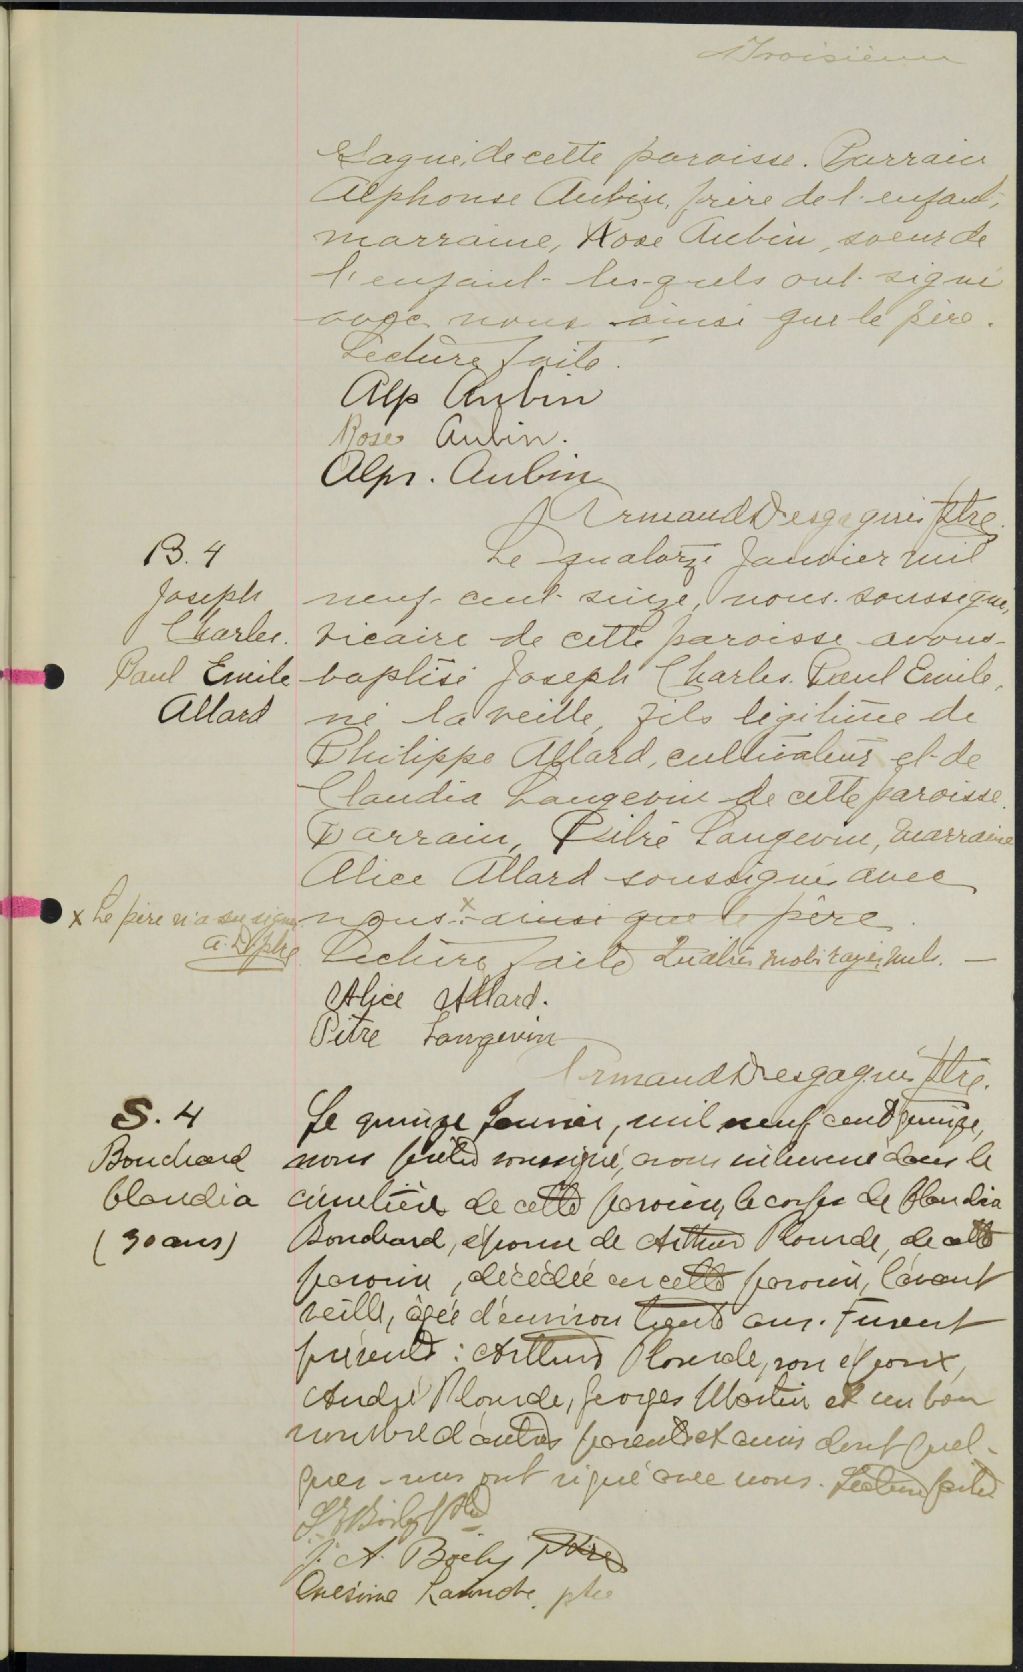 Troisième
Gagné, de cette paroisse. Parrain
Alphonse Aubin, frère de l'enfant,
marraine, Rose Aubin, soeur de
l'enfant lesquels ont signé
avec nous ainsi que le père.
Lecture faite.
Alp Aubin
Rose Aubin.
Alps. Aubin
Armand Desgagnés ptre.
B. 4
Joseph
Charles.
Paul Emile
Allard
Le quatorze Janvier mil
neuf cent seize, nous soussigné,
vicaire de cette paroisse avons
baptisé Joseph Charles Paul Emile,
né la veille, fils légitime de
Philippe Allard, cultivateur et de
Claudia Langevin de cette paroisse.
Parrain, Pitre Langevin, marraine
Alice Allard soussignés avec
nous. x ainsi que le père.
x Le père n'a su signer
A. D ptre
Lecture faite Quatre mots rayés nuls. —
Alice Allard.
Pitre Langevin
Armand Desgagnés ptre.
S. 4
Bouchard
Claudia
(30 ans)
Le quinze Janvier, mil neuf cent seize,
nous prêtre soussigné, avons inhumé dans le
cimetière de cette paroisse, le corps de Claudia
Bouchard, épouse de Arthur Plourde, de cette
paroisse, décédée en cette paroisse, l'avant
veille, âgée d'environ trente ans. Furent
présents : Arthur Plourde, son époux,
André Plourde, Georges Martin et un bon
nombre d'autres parents et amis dont quel-
ques-uns ont signé avec nous. Lecture faite
Boily Ptre
J. A. Boily Ptre
Onésime Larouche ptre